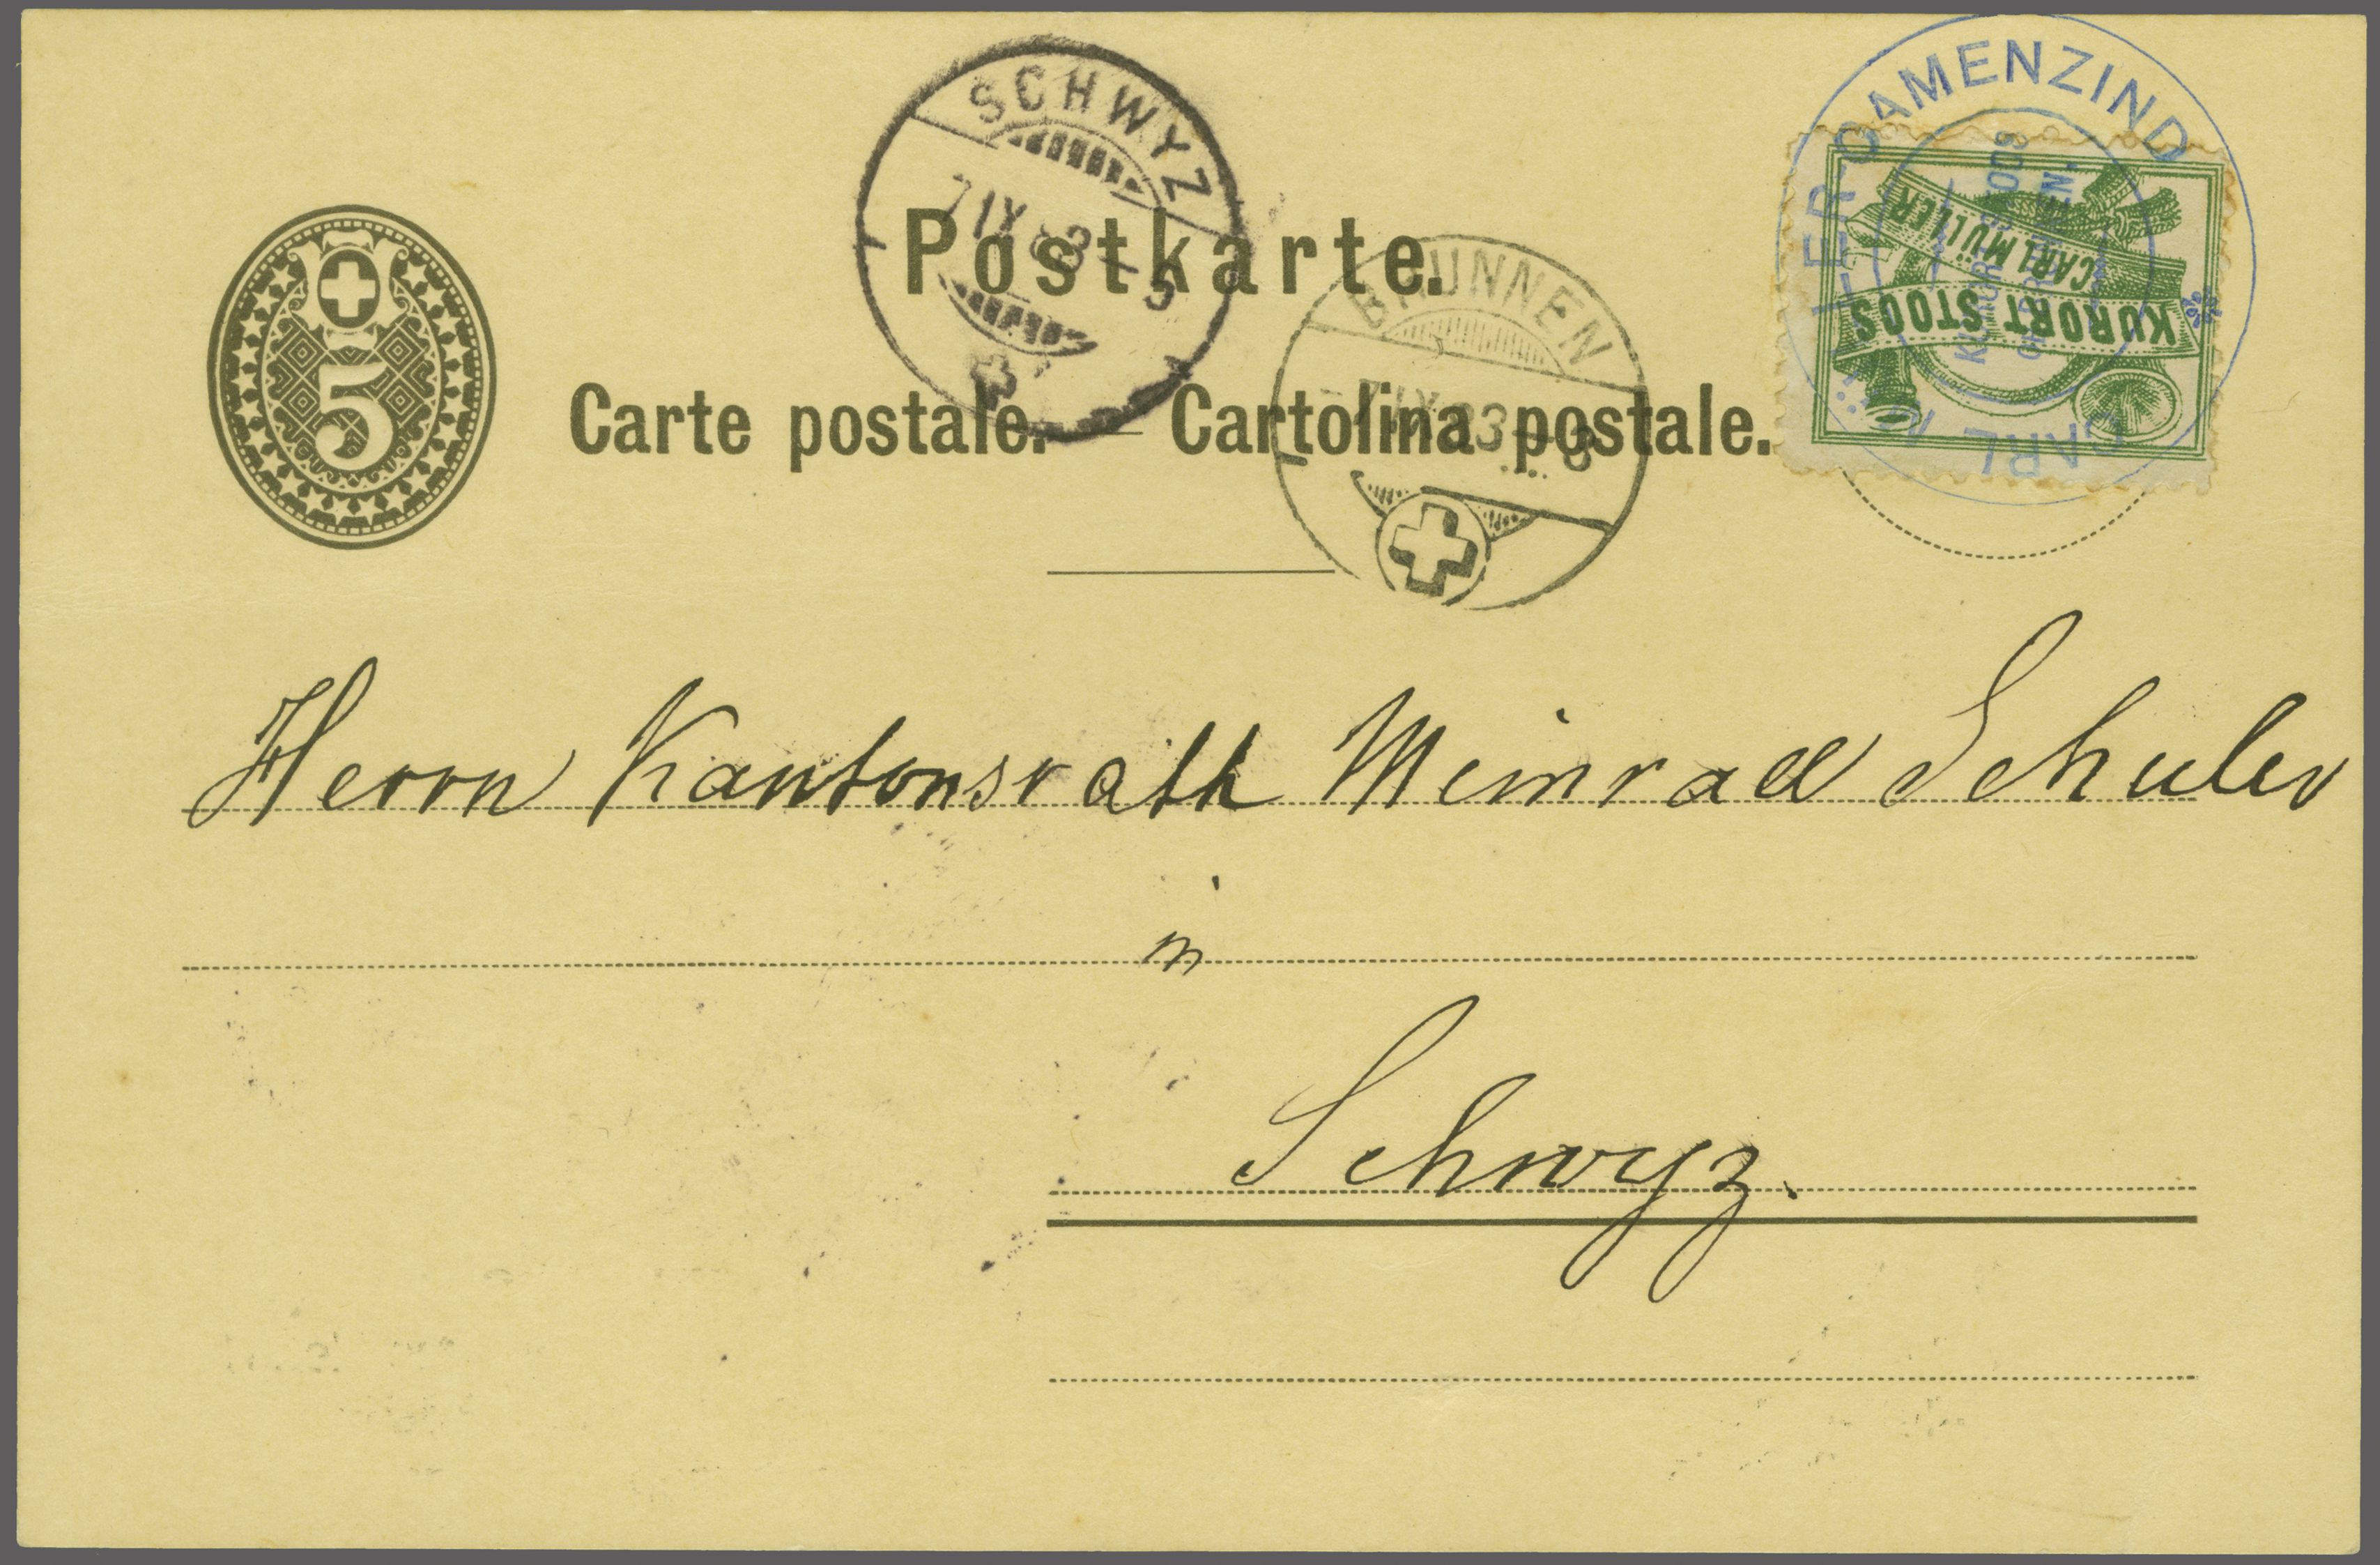 SCHWYZ
7 IX 83 - 5
Postkarte.
BRUNNEN
7 IX 83 - 8
CAMENZIND
CARL
CARL MÜLLER
KURORT STOOS
5
Carte postale. — Cartolina postale.
Herrn Kantonsrath Meinrad Schuler
in
Schwyz.